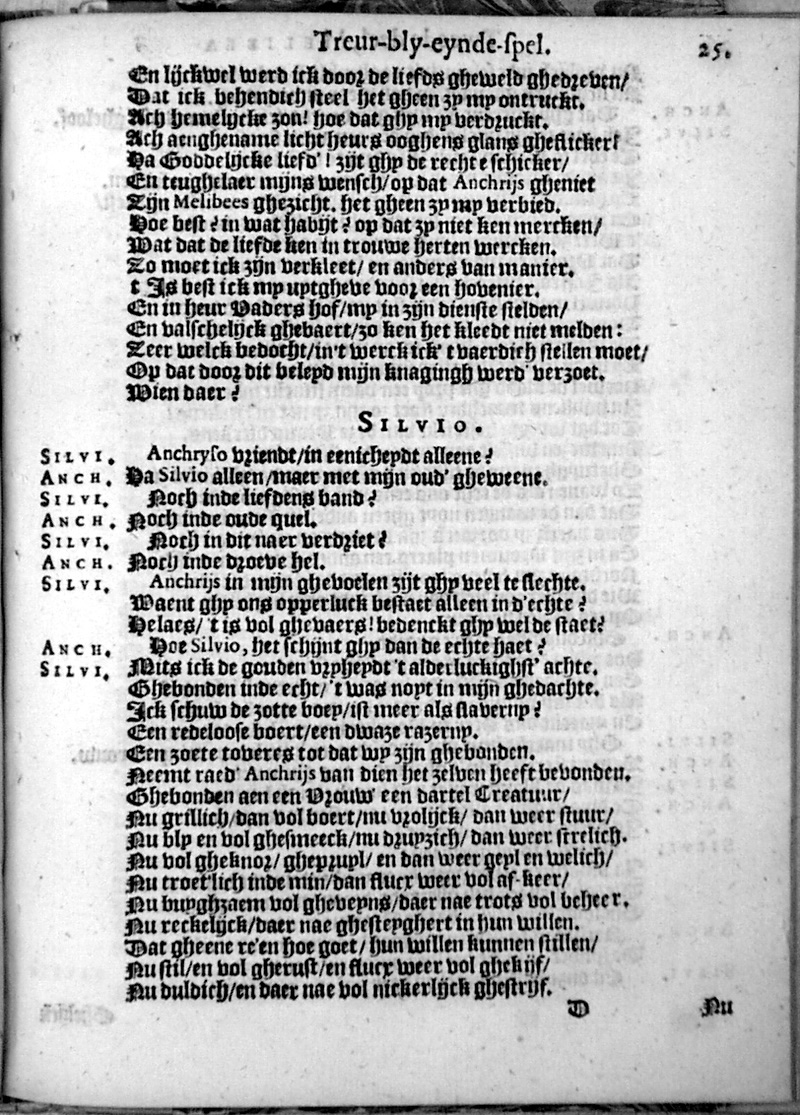 Treur-bly-eynde-spel. 25.
En lijckwel werd ick door de liefds gheweld ghedreven/
Dat ick behendich steel het gheen zy my ontruckt.
Ach hemelycke zon! hoe dat ghy my verdruckt.
Ach aenghename licht heurs ooghens glans gheflicker!
Ha Goddelijcke liefd'! zijt ghy de rechte schicker/
En teughelaer mijns wensch/op dat Anchrijs gheniet
Zijn Melibees ghezicht. het gheen zy my verbied.
Hoe best? in wat habijt? op dat zy niet ken mercken/
Wat dat de liefde ken in trouwe herten wercken.
Zo moet ick zijn verkleet/ en anders van manier.
t Is best ick my uytgheve voor een hovenier.
En in heur Vaders hof/my in zijn dienste stelden/
En valschelijck ghebaert/zo ken het kleedt niet melden:
Zeer welck bedocht/in't werck ick' t vaerdich stellen moet/
Op dat door dit beleyd mijn knagingh werd' verzoet.
Wien daer?
SILVIO.
SILVI. Anchryso vriendt/in eenicheydt alleene?
ANCH. Ha Silvio alleen/maer met mijn oud' gheweene.
SILVI. Noch inde liefdens band?
ANCH. Noch inde oude quel.
SILVI. Noch in dit naer verdriet?
ANCH. Noch inde droeve hel.
SILVI. Anchrijs in mijn ghevoelen zijt ghy veel te slechte.
Waent ghy ons opperluck bestaet alleen in d'echte?
Helaes/ 't is vol ghevaers! bedenckt ghy wel de staet?
ANCH. Hoe Silvio, het schijnt ghy dan de echte haet?
SILVI. Mits ick de gouden vryheydt 't alderluckighst' achte.
Ghebonden inde echt/ 't was noyt in mijn ghedachte.
Ick schuw de zotte boey/ist meer als slaverny?
Een redeloose boert/een dwaze razerny.
Een zoete toveres tot dat wy zijn ghebonden.
Neemt raed' Anchrijs van dien het zelven heeft bevonden.
Ghebonden aen een Vrouw' een dartel Creatuur/
Nu grillich/dan vol boert/nu vrolijck/ dan weer stuur/
Nu bly en vol ghesmeeck/nu druyzich/ dan weer strelich.
Nu vol gheknor/ ghepruyl/ en dan weer geyl en welich/
Nu troet'lich inde min/dan flucx weer vol af-keer/
Nu buyghzaem vol gheveyns/daer nae trots vol beheer.
Nu reckelijck/daer nae ghesteyghert in hun willen.
Dat gheene re'en hoe goet/ hun willen kunnen stillen/
Nu stil/en vol gherust/en flucx weer vol ghekijf/
Nu duldich/en daer nae vol nickerlijck ghestrijf.
D Nu